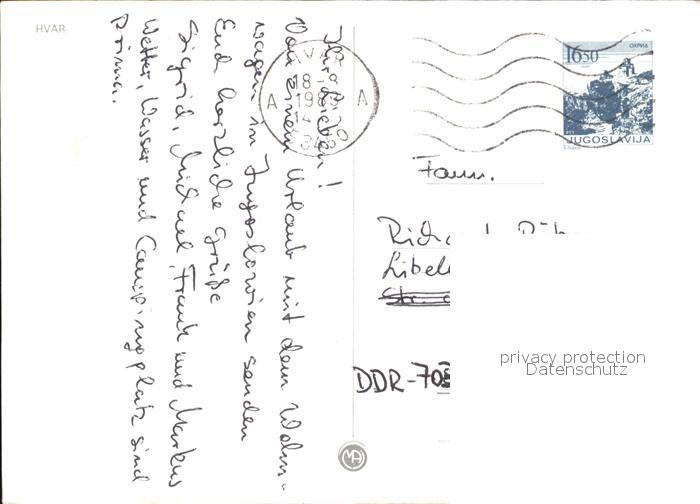 HVAR
Ihr Lieben!
Von einem Urlaub mit dem Wohn-
wagen in Jugoslawien senden
Euch herzliche Grüße
Sigrid, Michael, Frank und Markus
Wetter, Wasser und Campingplatz sind
prima.
16.50
ОХРИД
JUGOSLAVIJA
A A
18
198
14
Fam.
Libel
Str.
DDR-705
privacy protection
Datenschutz